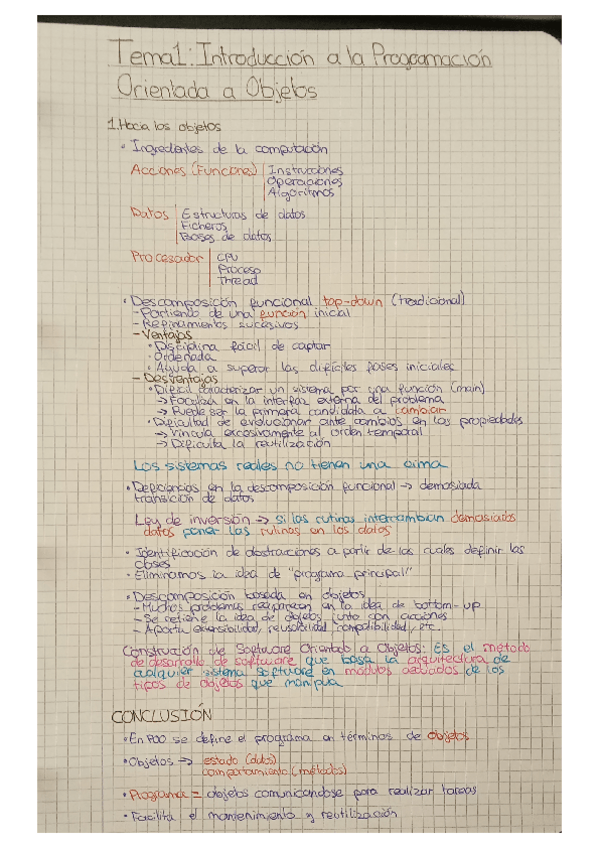 Tema1: Introducción a la Programación
Orientada a Objetos
1. Hacia los objetos
• Ingredientes de la computación
Acciones (Funciones) Instrucciones
Operaciones
Algoritmos
Datos Estructuras de datos
Ficheros
Bases de datos
Procesador CPU
Proceso
Thread
• Descomposición funcional top-down (tradicional)
- Partiendo de una función inicial
- Refinamientos sucesivos
- Ventajas
• Disciplina fácil de captar
• Ordenada
• Ayuda a superar las difíciles fases iniciales
- Desventajas
• Difícil caracterizar un sistema por una función (main)
→ Focaliza en la interfaz externa del problema
→ Puede ser la primera candidata a cambiar
• Dificultad de evolucionar ante cambios en las propiedades
→ Vincula excesivamente al orden temporal
→ Dificulta la reutilización
Los sistemas reales no tienen una cima
• Deficiencias en la descomposición funcional → demasiada
transición de datos
Ley de inversión → si las rutinas intercambian demasiados
datos poner las rutinas en los datos
• Identificación de abstracciones a partir de las cuales definir las
clases
• Eliminamos la idea de "programa principal"
• Descomposición basada en objetos
- Muchos problemas reaparecen en la idea de bottom-up
- Se retiene la idea de objetos junto con acciones
- Aporta extensibilidad, reusabilidad, compatibilidad, etc
Construcción de Software Orientado a Objetos: Es el método
de desarrollo de software que basa la arquitectura de
cualquier sistema software en módulos deducidos de los
tipos de objetos que manipula
CONCLUSIÓN
• En POO se define el programa en términos de objetos
• Objetos → estado (datos)
comportamiento (métodos)
• Programa = objetos comunicandose para realizar tareas
• Facilita el mantenimiento y reutilización